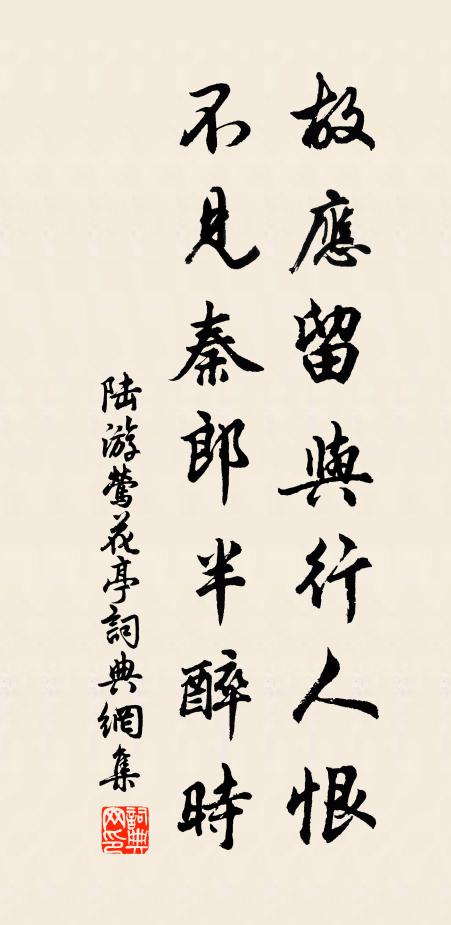 故應留與行人恨
不見秦郎半醉時
陆游鶯花亭詞典網集
詞典網印